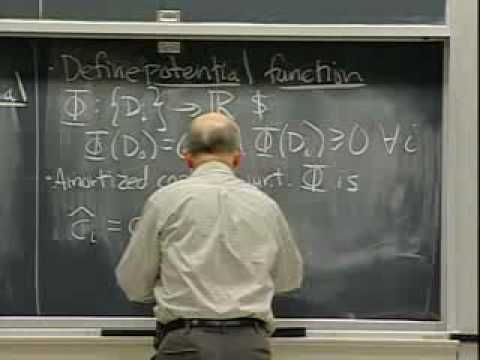 · Define potential function
Φ : {Dᵢ} → ℝ $
Φ(D₀)=0 Φ(Dᵢ)≥0 ∀i
· Amortized Φ is
ĉᵢ =